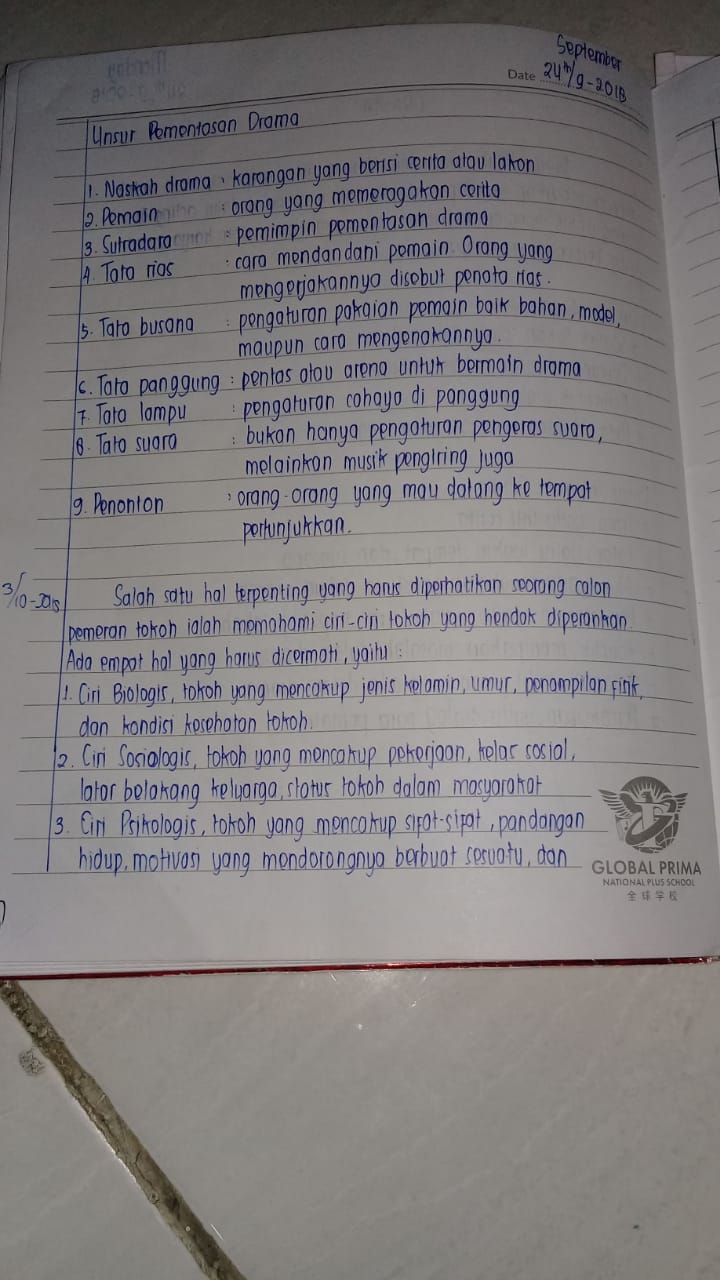 September
Date 24th/9-2018
Unsur Pementasan Drama
1. Naskah drama : karangan yang berisi cerita atau lakon
2. Pemain : orang yang memeragakan cerita
3. Sutradara : pemimpin pementasan drama
4. Tata rias : cara mendandani pemain. Orang yang
mengerjakannya disebut penata rias.
5. Tata busana : pengaturan pakaian pemain baik bahan, model,
maupun cara mengenakannya.
6. Tata panggung : pentas atau arena untuk bermain drama
7. Tata lampu : pengaturan cahaya di panggung
8. Tata suara : bukan hanya pengaturan pengeras suara,
melainkan musik pengiring juga
9. Penonton : orang-orang yang mau datang ke tempat
pertunjukkan.
3/10-2018 Salah satu hal terpenting yang harus diperhatikan seorang calon
pemeran tokoh ialah memahami ciri-ciri tokoh yang hendak diperankan.
Ada empat hal yang harus dicermati, yaitu :
1. Ciri Biologis, tokoh yang mencakup jenis kelamin, umur, penampilan fisik,
dan kondisi kesehatan tokoh.
2. Ciri Sosiologis, tokoh yang mencakup pekerjaan, kelas sosial,
latar belakang keluarga, status tokoh dalam masyarakat
3. Ciri Psikologis, tokoh yang mencakup sifat-sifat, pandangan
hidup, motivasi yang mendorongnya berbuat sesuatu, dan
GLOBAL PRIMA
NATIONAL PLUS SCHOOL
全球学校